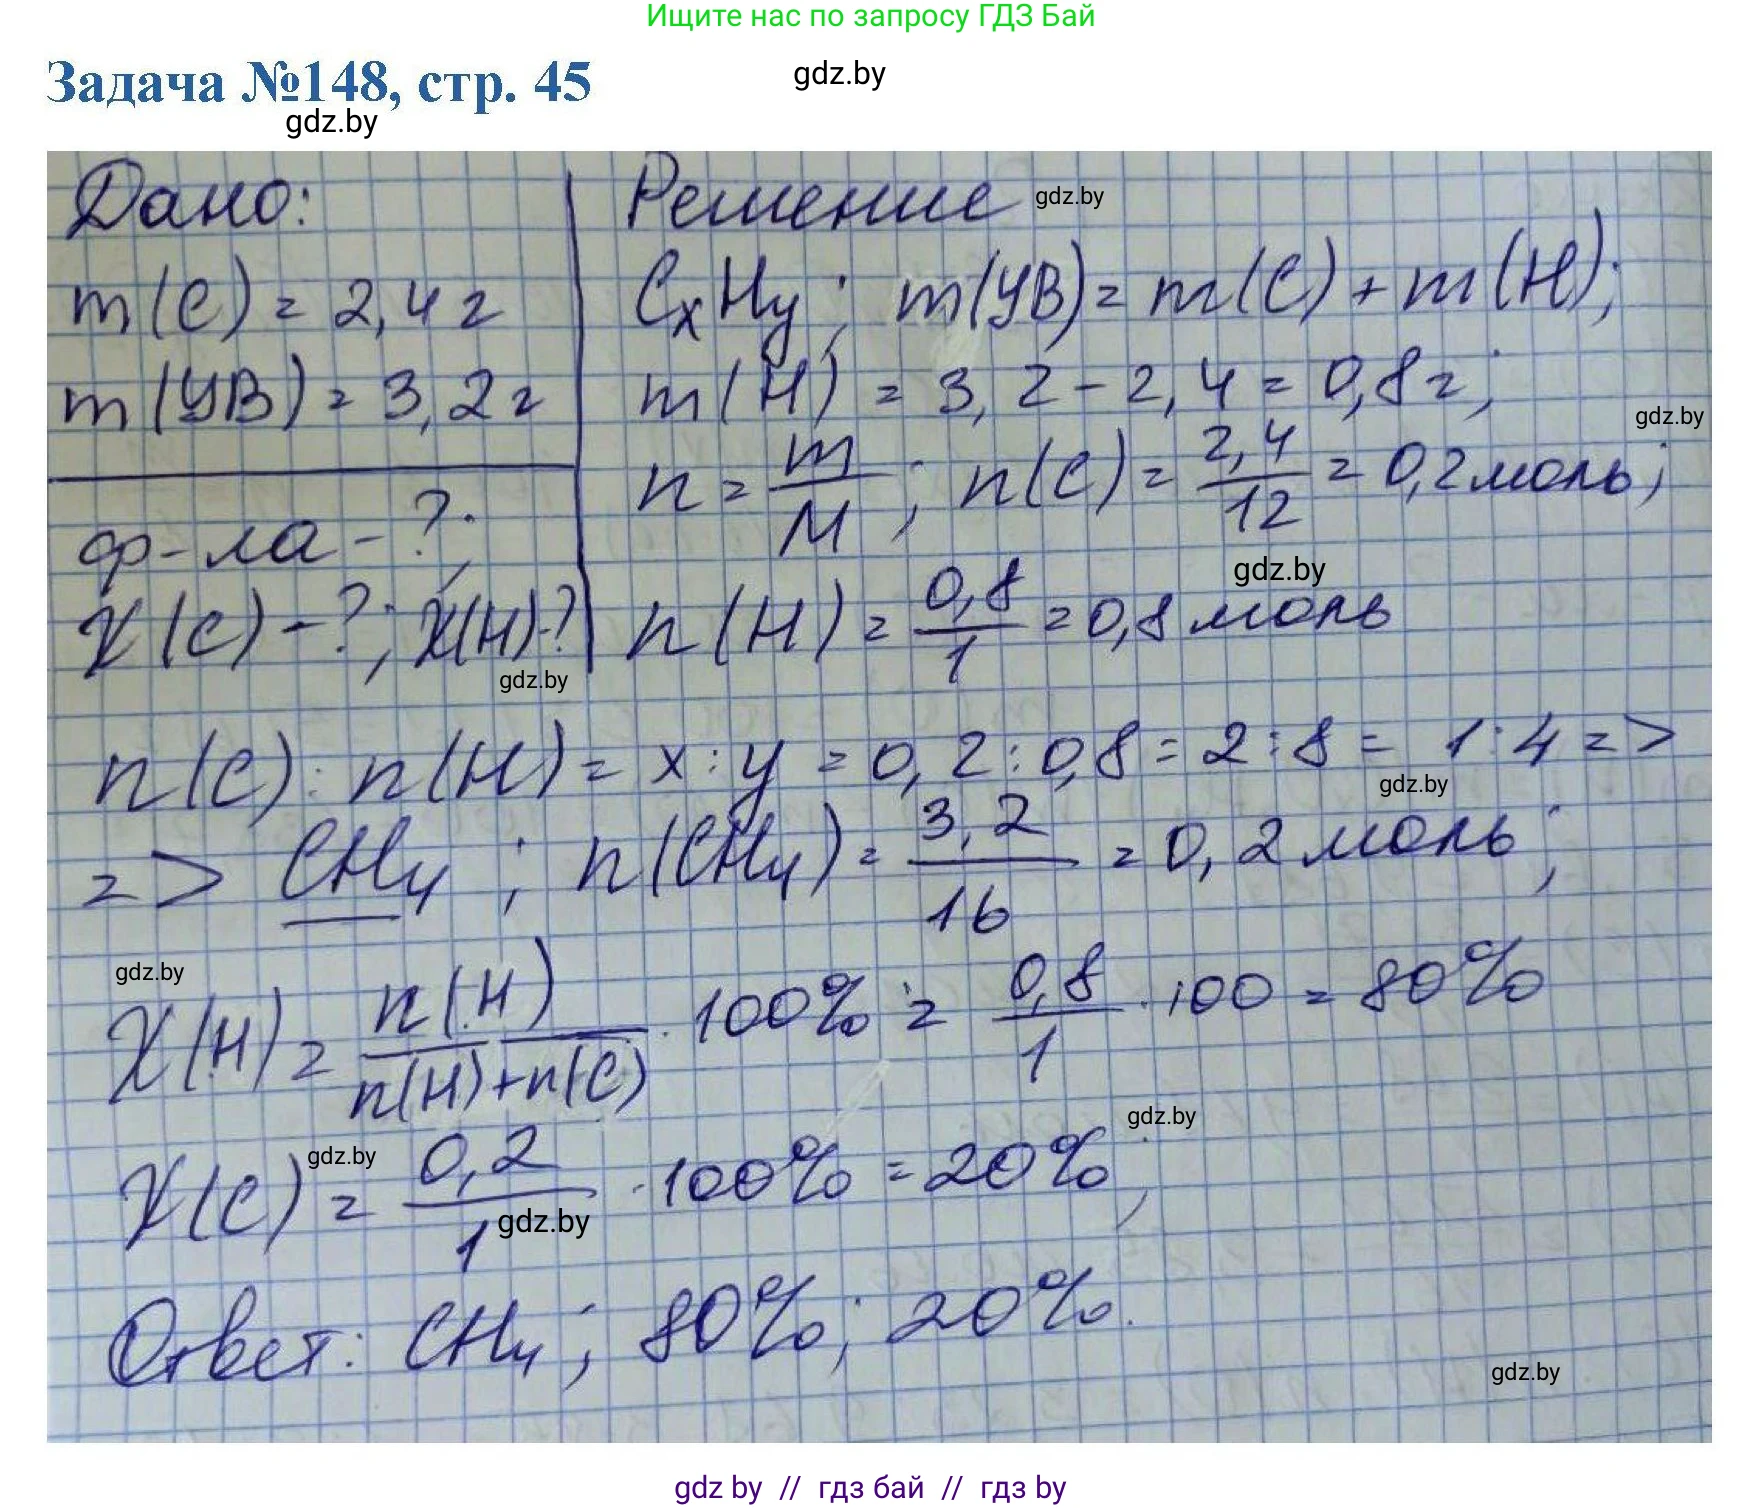 Ищите нас по запросу ГДЗ Бай
Задача №148, стр. 45
gdz.by
gdz.by
Дано:
m(C) = 2,4 г
m(УВ) = 3,2 г
ф-ла - ?;
X(C) - ?; X(H)-?
Решение gdz.by
CxHy; m(УВ) = m(C) + m(H);
m(H) = 3,2 - 2,4 = 0,8 г;
gdz.by
n = m/M; n(C) = 2,4/12 = 0,2 моль;
gdz.by
n(H) = 0,8/1 = 0,8 моль
gdz.by
n(C) : n(H) = x : y = 0,2 : 0,8 = 2 : 8 = 1 : 4 =>
gdz.by
=> CH4; n(CH4) = 3,2/16 = 0,2 моль;
gdz.by
X(H) = n(H)/n(H)+n(C) · 100% = 0,8/1 · 100 = 80%
gdz.by
gdz.by
X(C) = 0,2/1 · 100% = 20%;
gdz.by
Ответ: CH4; 80%; 20%.
gdz.by
gdz by // гдз бай // гдз by